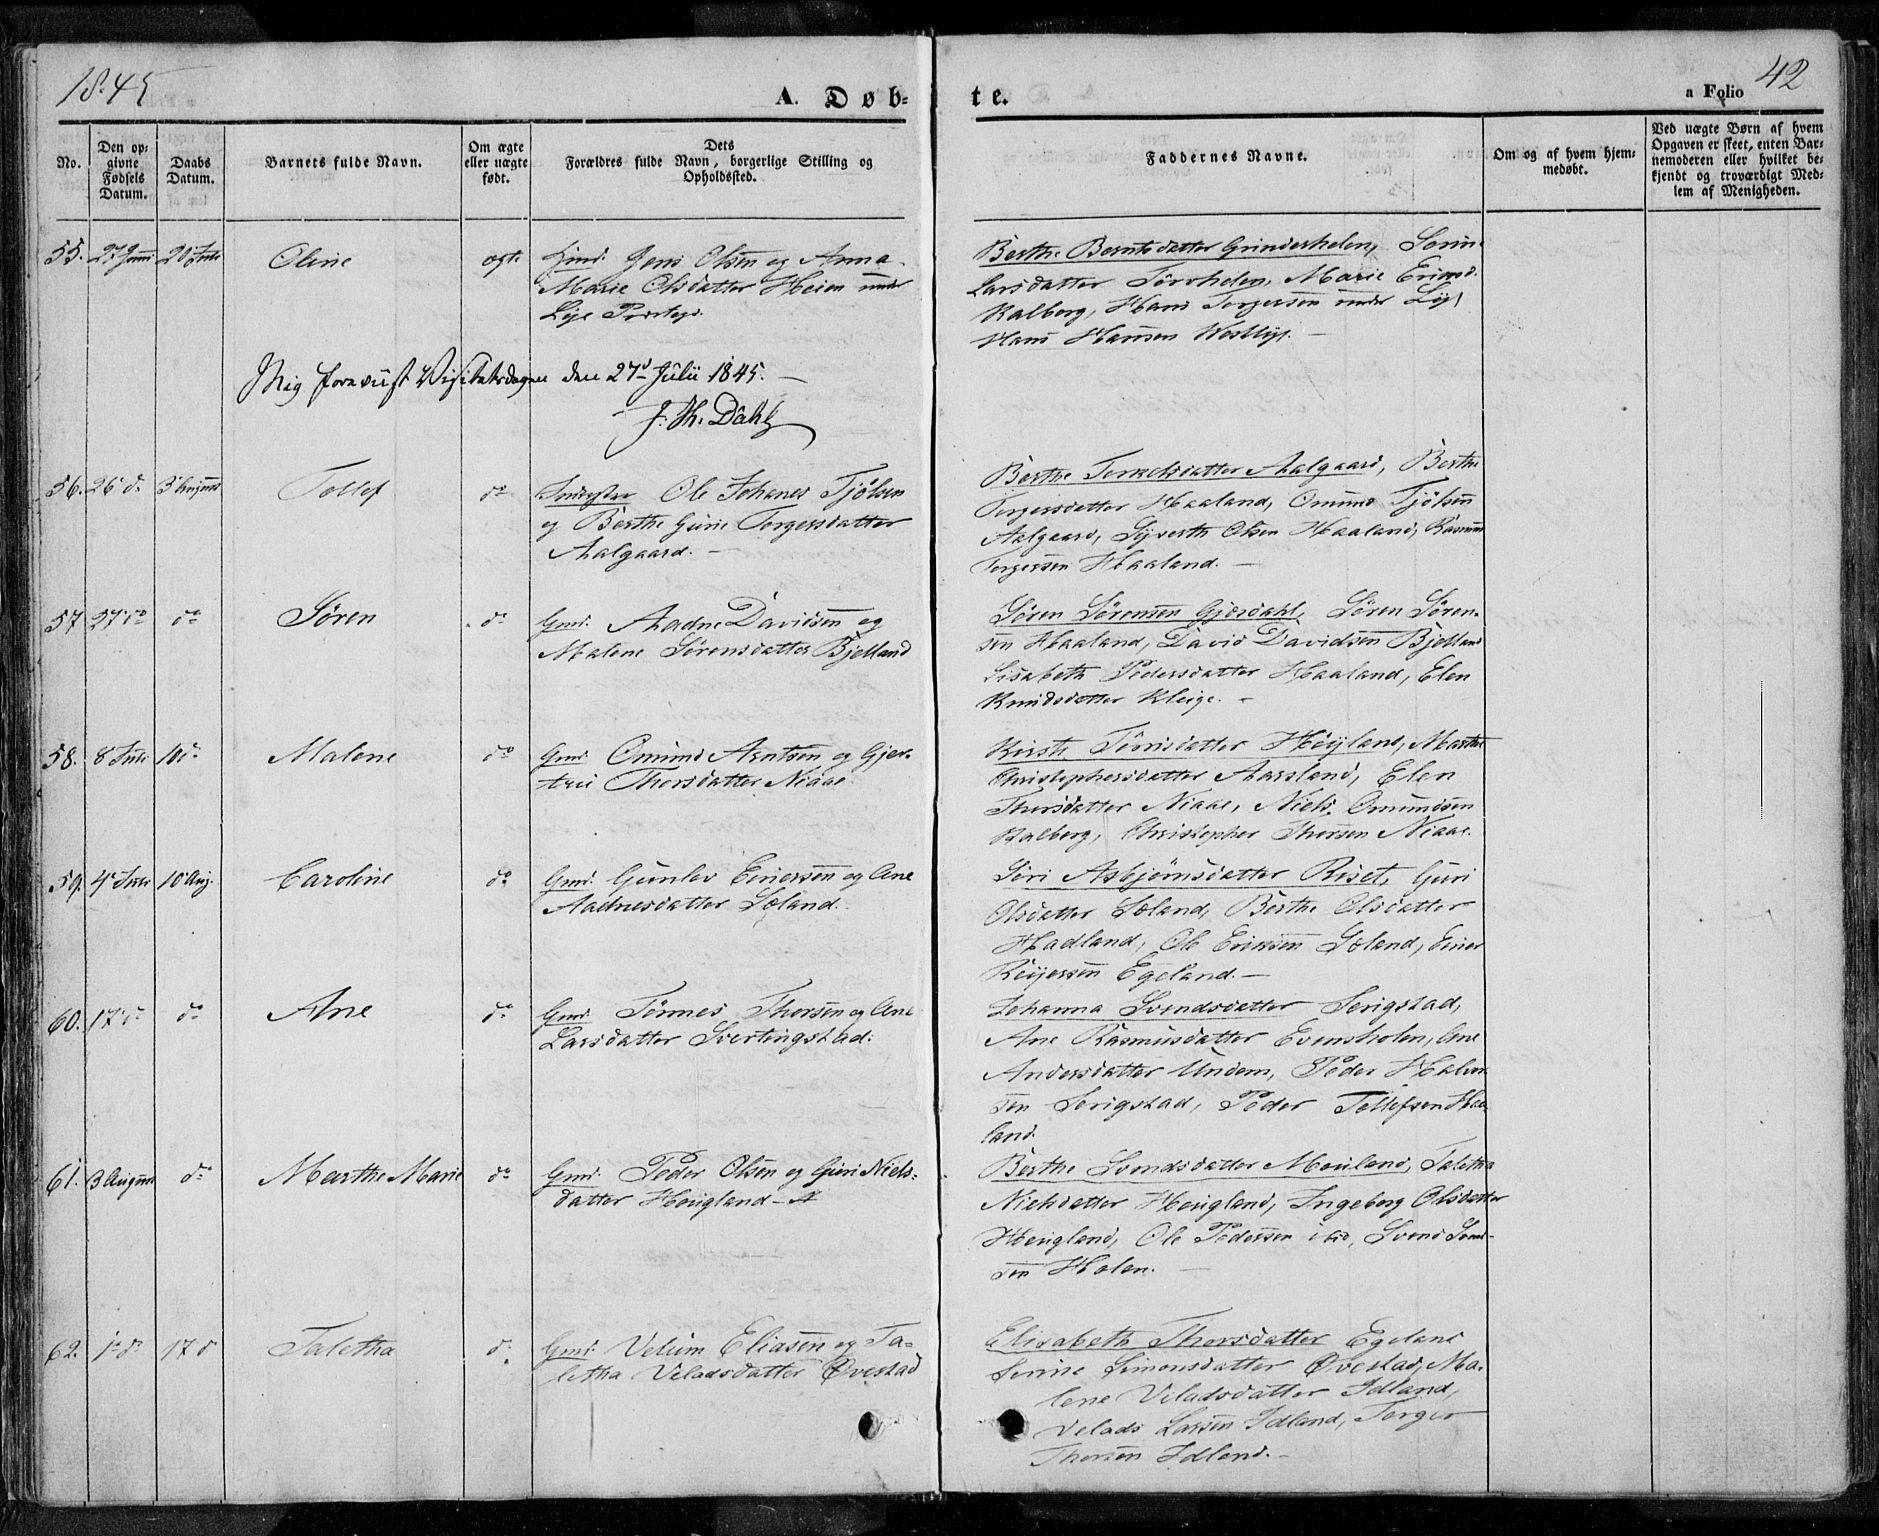 1845
A. Døb-
te.
a Folio 42
No.
Den op-
givne
Fødsels
Datum.
Daabs
Datum.
Barnets fulde Navn.
Om ægte
eller uægte
født.
Dets
Forældres fulde Navn, borgerlige Stilling og
Opholdssted.
Faddernes Navne.
Om og af hvem hjem-
medøbt.
Ved uægte Børn af hvem
Opgaven er skeet, enten Bar-
nemoderen eller hvilket be-
kjendt og troværdigt Med-
lem af Menigheden.
55. 27 Juni 20 Juli Oline ægte Jens Olsen og Anna
Marie Olsdatter Heien under
Lye Præstegj.
Berthe Berntsdatter Grinderhelen,
Larsdatter Torvhelen, Marie
Kalberg, Hans Torgersen under Lye,
Hans Hansen Westlye. —
Mig foreviist Visitatsdagen den 27d Julii 1845. —
J. Th. Dahl
56. 26 d. 3 August Tollef do Ole Johanes Tjølsen
og Berthe Gurie Torgersdatter
Aalgaard. —
Berthe Torkelsdatter Aalgaard, Berthe
Torgersdatter Haaland, Omund Tjølsen
Aalgaard, Syverth Olsen Haaland, Rasmus
Torgersen Haaland. —
57 27 do do Søren do Gmd. Aadne Davidsen og
Malene Sørensdatter Bjelland
Søren Sørensen Gjesdahl, Søren Søren-
sen Haaland, David Davidsen Bjelland
Lisabeth Pedersdatter Haaland, Elen
Knudsdatter Kleige. -
58. 8 Juli 10 d. Malene do Gmd. Omund Arntsen og Gjer-
trui Thorsdatter Niaae
Tørrisdatter Høyland, Marthe
Christophersdatter Aarsland, Elen
Thorsdatter Niaae, Niels Omundsen
Kalberg, Christopher Thorsen Niaae.
59. 4 Juli 10 Aug. Caroline do Gmd. Gunlev Einersen og Ane
Aadnesdatter Sæland.
Siri Asbjørnsdatter Riset, Guri
Olsdatter Sæland, Berthe Olsdatter
Hadland, Ole Eriksen Sæland, Einer
Reiersen Egeland. —
60. 17 d. do Ane do Gmd. Tønnes Thorsen og Ane
Larsdatter Svertingstad.
Johanna Svendsdatter Serigstad,
Ane Rasmusdatter Evensholen, Ane
Andersdatter Undem, Peder Halvor-
sen Serigstad, Peder Tollefsen Haa-
land.
61. 3 August do Marthe Marie do Gmd. Peder Olsen og Guri Niels-
datter Høugland
Berthe Svendsdatter Mouland, Taletha
Nielsdatter Høugland, Ingeborg Olsdatter
Høugland, Ole Pedersen ibid, Svend Svend-
sen Holen. —
62. 1 d. 17 d Taletha d. Gmd. Velum Eliasen og Ta-
letha Veladsdatter Øvestad
Elisabeth Thorsdatter Egeland
Serine Simonsdatter Øvestad, Ma-
lene Veladsdatter Idland,
Velads Larsen Idland, Torger
Thorsen Idland. -